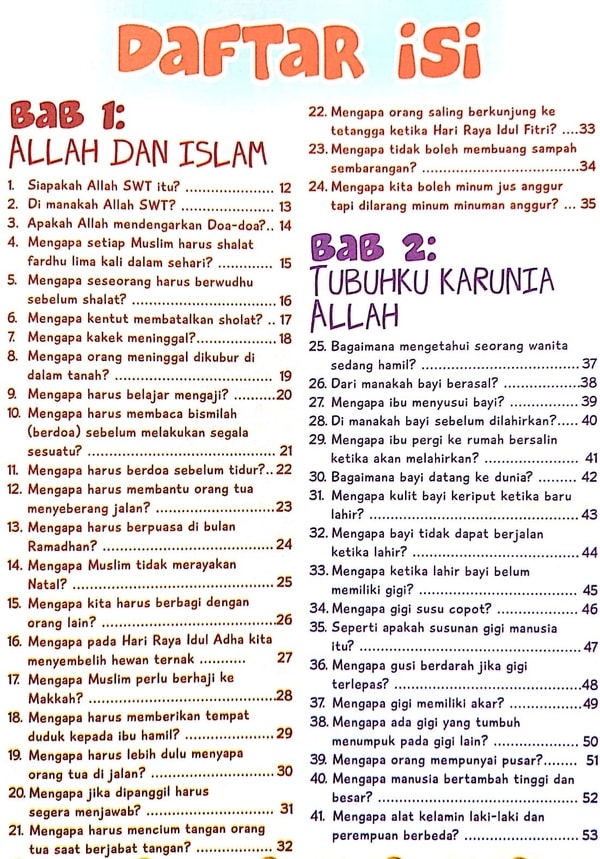 DAFTAR ISI
BAB 1:
ALLAH DAN ISLAM
1. Siapakah Allah SWT itu? ..................... 12
2. Di manakah Allah SWT? ...................... 13
3. Apakah Allah mendengarkan Doa-doa?.. 14
4. Mengapa setiap Muslim harus shalat
fardhu lima kali dalam sehari? ............. 15
5. Mengapa seseorang harus berwudhu
sebelum shalat? ................................. 16
6. Mengapa kentut membatalkan sholat? .. 17
7. Mengapa kakek meninggal?...................18
8. Mengapa orang meninggal dikubur di
dalam tanah? ..................................... 19
9. Mengapa harus belajar mengaji? ..........20
10. Mengapa harus membaca bismilah
(berdoa) sebelum melakukan segala
sesuatu? ............................................ 21
11. Mengapa harus berdoa sebelum tidur?..22
12. Mengapa harus membantu orang tua
menyeberang jalan? ............................23
13. Mengapa harus berpuasa di bulan
Ramadhan? ........................................ 24
14. Mengapa Muslim tidak merayakan
Natal? ............................................... 25
15. Mengapa kita harus berbagi dengan
orang lain? .........................................26
16. Mengapa pada Hari Raya Idul Adha kita
menyembelih hewan ternak ........... 27
17. Mengapa Muslim perlu berhaji ke
Makkah? .............................................28
18. Mengapa harus memberikan tempat
duduk kepada ibu hamil? .................... 29
19. Mengapa harus lebih dulu menyapa
orang tua di jalan? ............................. 30
20. Mengapa jika dipanggil harus
segera menjawab? .......................... 31
21. Mengapa harus mencium tangan orang
tua saat berjabat tangan? .................. 32
22. Mengapa orang saling berkunjung ke
tetangga ketika Hari Raya Idul Fitri? ....33
23. Mengapa tidak boleh membuang sampah
sembarangan? .....................................34
24. Mengapa kita boleh minum jus anggur
tapi dilarang minum minuman anggur? ... 35
BAB 2:
TUBUHKU KARUNIA
ALLAH
25. Bagaimana mengetahui seorang wanita
sedang hamil? .....................................37
26. Dari manakah bayi berasal? ................38
27. Mengapa ibu menyusui bayi? .............. 39
28. Di manakah bayi sebelum dilahirkan?..... 40
29. Mengapa ibu pergi ke rumah bersalin
ketika akan melahirkan? ...................... 41
30. Bagaimana bayi datang ke dunia? ......... 42
31. Mengapa kulit bayi keriput ketika baru
lahir? .................................................. 43
32. Mengapa bayi tidak dapat berjalan
ketika lahir? ........................................ 44
33. Mengapa ketika lahir bayi belum
memiliki gigi? ...................................... 45
34. Mengapa gigi susu copot? ................... 46
35. Seperti apakah susunan gigi manusia
itu? ..................................................... 47
36. Mengapa gusi berdarah jika gigi
terlepas? .............................................48
37. Mengapa gigi memiliki akar? ................49
38. Mengapa ada gigi yang tumbuh
menumpuk pada gigi lain? .................... 50
39. Mengapa orang mempunyai pusar?........ 51
40. Mengapa manusia bertambah tinggi dan
besar? ................................................ 52
41. Mengapa alat kelamin laki-laki dan
perempuan berbeda? ........................... 53